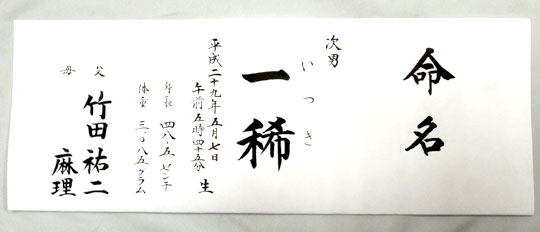 命名
次男
いつき
一稀
平成二十九年五月七日
午前五時四十五分
生
身長 四八・五センチ
体重 三、〇八五グラム
父 竹田祐二
母 麻理